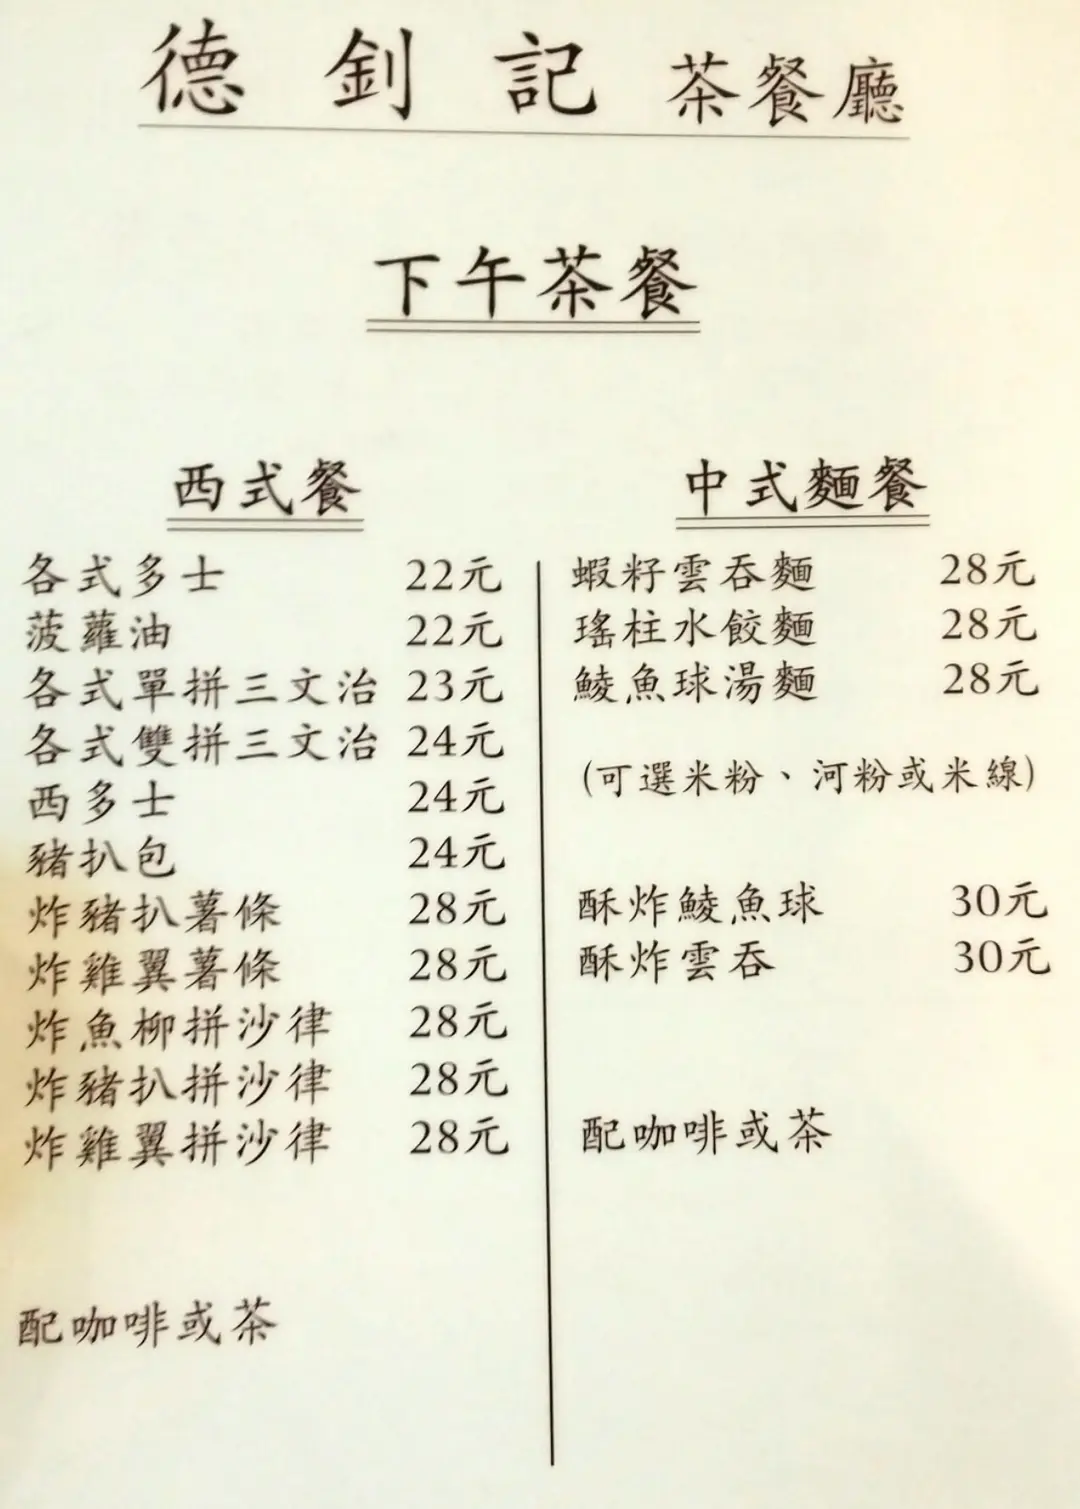 德釗記茶餐廳
下午茶餐
西式餐
各式多士 22元
菠蘿油 22元
各式單拼三文治 23元
各式雙拼三文治 24元
西多士 24元
豬扒包 24元
炸豬扒薯條 28元
炸雞翼薯條 28元
炸魚柳拼沙律 28元
炸豬扒拼沙律 28元
炸雞翼拼沙律 28元
配咖啡或茶
中式麵餐
蝦籽雲吞麵 28元
瑤柱水餃麵 28元
鯪魚球湯麵 28元
(可選米粉、河粉或米線)
酥炸鯪魚球 30元
酥炸雲吞 30元
配咖啡或茶